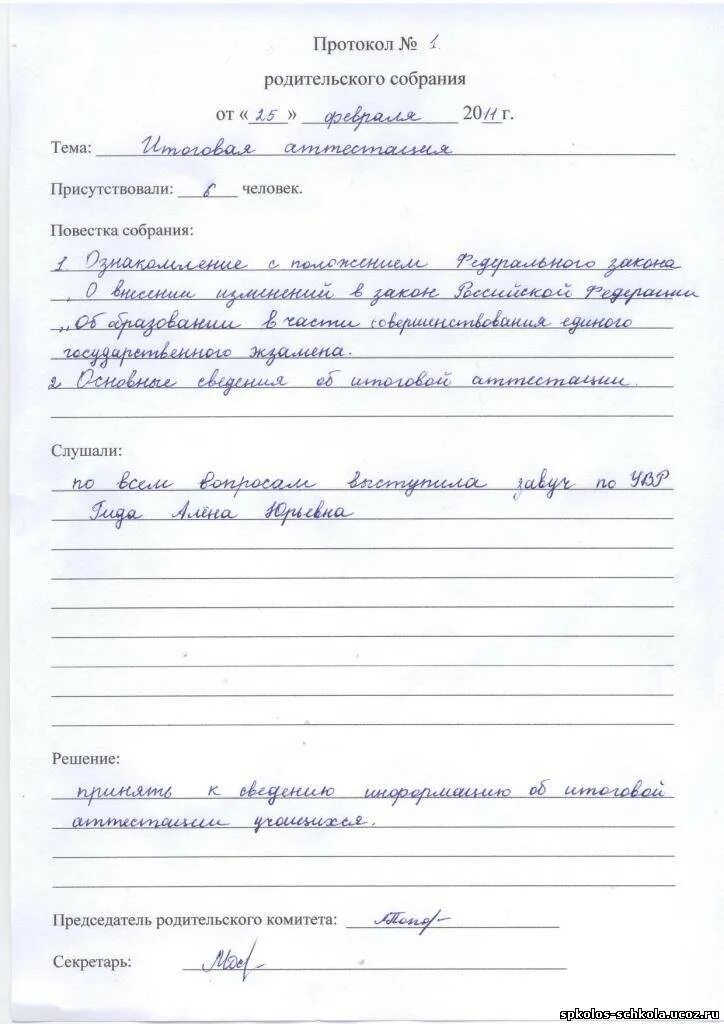 Протокол № 1
родительского собрания
от «25» февраля 2011г.
Тема: Итоговая аттестация
Присутствовали: 6 человек.
Повестка собрания:
1 Ознакомление с положением Федерального закона
„О внесении изменений в закон Российской Федерации
„Об образовании в части совершенствования единого
государственного экзамена.
2 Основные сведения об итоговой аттестации.
Слушали:
по всем вопросам выступила завуч по УВР
Гида Алёна Юрьевна
Решение:
принять к сведению информацию об итоговой
аттестации учащихся.
Председатель родительского комитета:
Секретарь:
spkolos-schkola.ucoz.ru